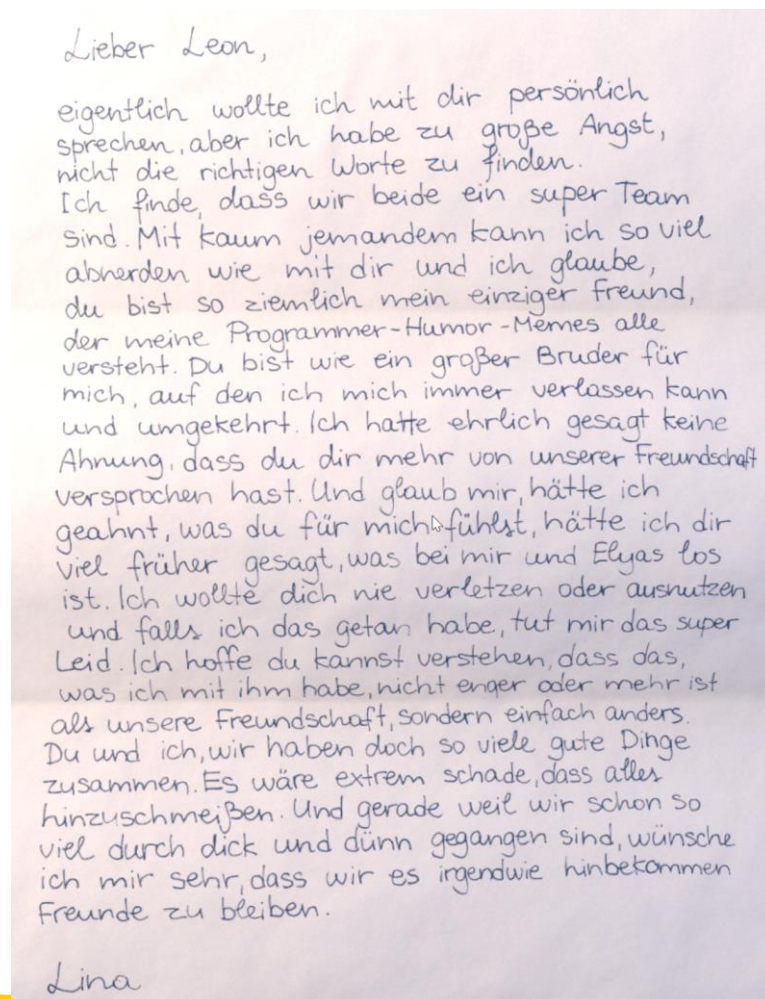 Lieber Leon,
eigentlich wollte ich mit dir persönlich
sprechen, aber ich habe zu große Angst,
nicht die richtigen Worte zu finden.
Ich finde, dass wir beide ein super Team
sind. Mit kaum jemandem kann ich so viel
abnerden wie mit dir und ich glaube,
du bist so ziemlich mein einziger Freund,
der meine Programmer-Humor-Memes alle
versteht. Du bist wie ein großer Bruder für
mich, auf den ich mich immer verlassen kann
und umgekehrt. Ich hatte ehrlich gesagt keine
Ahnung, dass du dir mehr von unserer Freundschaft
versprochen hast. Und glaub mir, hätte ich
geahnt, was du für mich fühlst, hätte ich dir
viel früher gesagt, was bei mir und Elyas los
ist. Ich wollte dich nie verletzen oder ausnutzen
und falls ich das getan habe, tut mir das super
Leid. Ich hoffe du kannst verstehen, dass das,
was ich mit ihm habe, nicht enger oder mehr ist
als unsere Freundschaft, sondern einfach anders.
Du und ich, wir haben doch so viele gute Dinge
zusammen. Es wäre extrem schade, dass alles
hinzuschmeißen. Und gerade weil wir schon so
viel durch dick und dünn gegangen sind, wünsche
ich mir sehr, dass wir es irgendwie hinbekommen
Freunde zu bleiben.
Lina